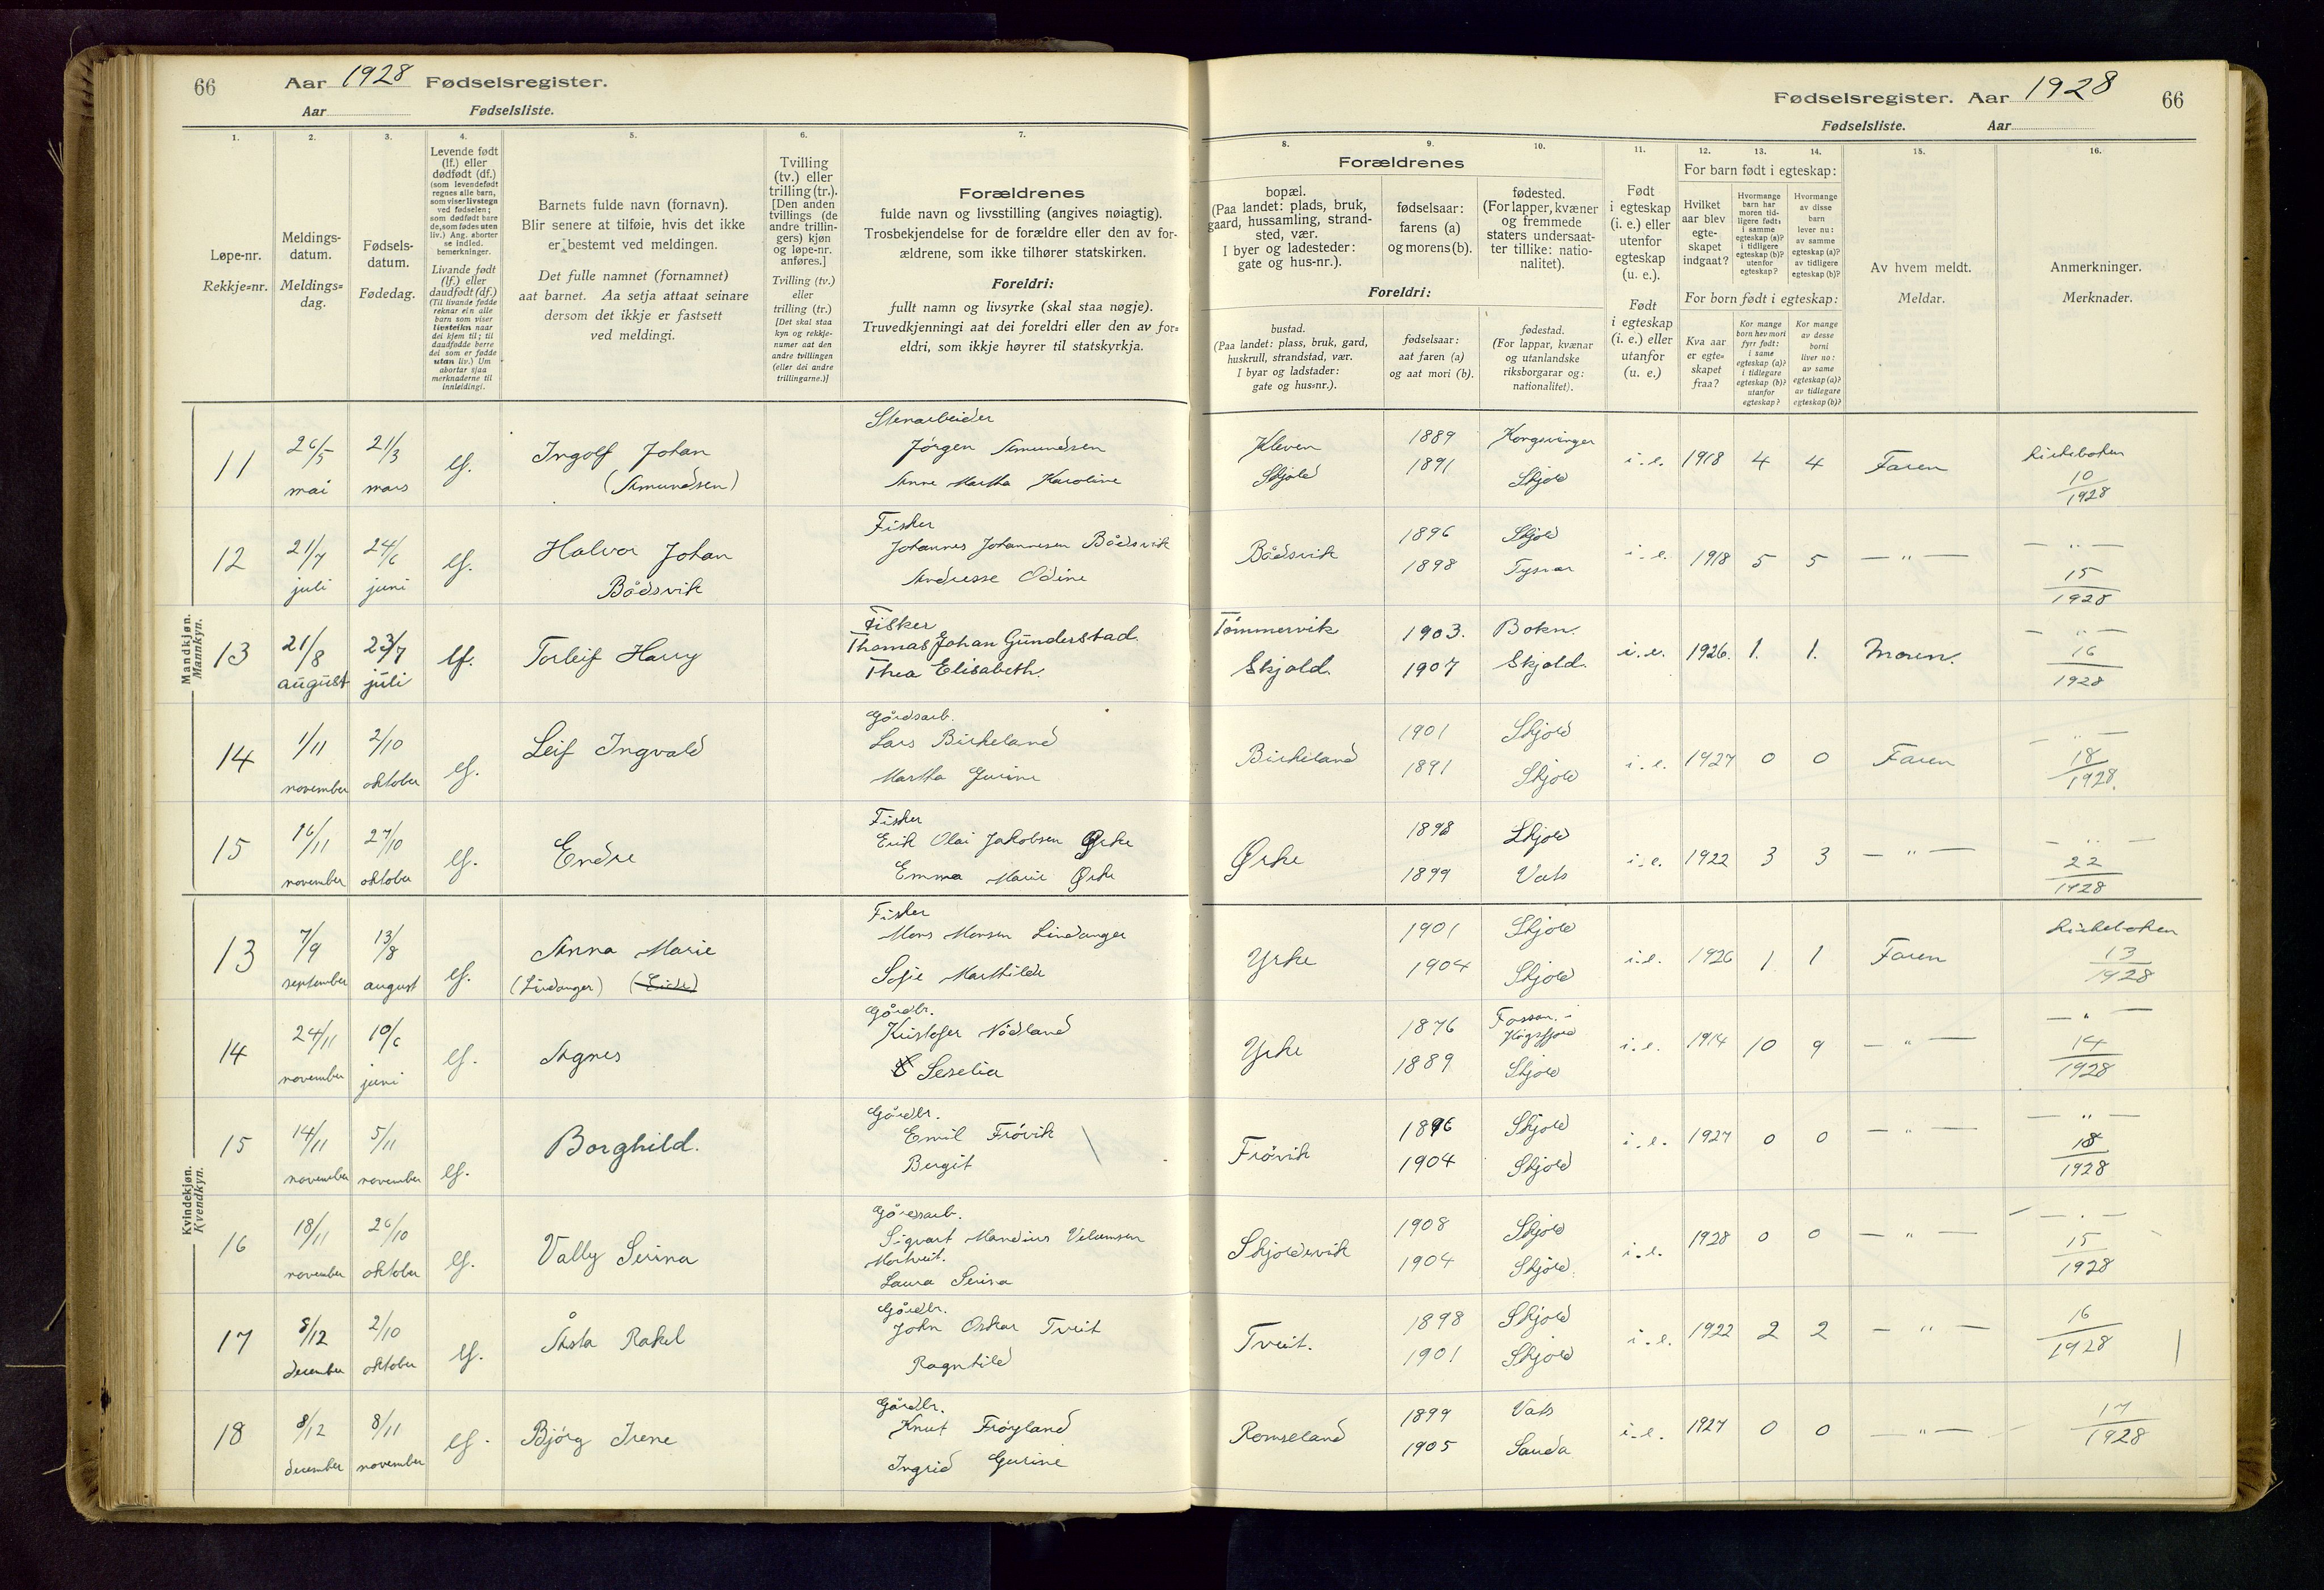 66
Aar 1928 Fødselsregister.
Aar Fødselsliste.
Fødselsregister. Aar 1928
66
Fødselsliste. Aar
1.
Løpe-nr.
Rekkje=nr.
2.
Meldings-
datum.
Meldings=
dag.
3.
Fødsels-
datum.
Fødedag.
4.
Levende født
(lf.) eller
dødfødt (df.)
(som levendefødt
regnes alle barn,
som viser livstegn
ved fødselen;
som dødfødt bare
de, som fødes uten
liv.) Ang. aborter
se indled.
bemerkninger.
Livande født
(lf.) eller
daudfødt (df.)
(Til livande fødde
reknar ein alle
barn som viser
livsteikn naar
dei kjem til; til
daudfødde berre
dei som er fødde
utan liv.) Um
abortar sjaa
merknaderne til
innleidingi.
5.
Barnets fulde navn (fornavn).
Blir senere at tilføie, hvis det ikke
er bestemt ved meldingen.
Det fulle namnet (fornamnet)
aat barnet. Aa setja attaat seinare
dersom det ikkje er fastsett
ved meldingi.
6.
Tvilling
(tv.) eller
trilling (tr.).
[Den anden
tvillings (de
andre trillin-
gers) kjøn
og løpe-nr.
anføres.]
Tvilling (tv.)
eller
trilling (tr.)
[Det skal staa
kyn og rekkje-
numer aat den
andre tvillingen
(eller dei andre
trillingarne.)]
7.
Forældrenes
fulde navn og livsstilling (angives nøiagtig).
Trosbekjendelse for de forældre eller den av for-
ældrene, som ikke tilhører statskirken.
Foreldri:
fullt namn og livsyrke (skal staa nøgje).
Truvedkjenningi aat dei foreldri eller den av for=
eldri, som ikkje høyrer til statskyrkja.
Forældrenes
8.
bopæl.
(Paa landet: plads, bruk,
gaard, hussamling, strand-
sted, vær.
I byer og ladesteder:
gate og hus-nr.).
9.
fødselsaar:
farens (a)
og morens (b).
10.
fødested.
(For lapper, kvæner
og fremmede
staters undersaat-
ter tillike: natio-
nalitet).
Foreldri:
bustad.
(Paa landet: plass, bruk, gard,
huskrull, strandstad, vær.
I byar og ladstader:
gate og hus=nr.).
fødselsaar:
aat faren (a)
og aat mori (b).
fødestad.
(For lappar, kvænar
og utanlandske
riksborgarar og:
nationalitet).
11.
Født
i egteskap
(i. e.) eller
utenfor
egteskap
(u. e.).
Født
i egteskap
(i. e.) eller
utanfor
(u. e.)
12. 13. 14.
For barn født i egteskap:
Hvilket
aar blev
egte-
skapet
indgaat?
Hvormange
barn har
moren tid-
ligere født:
i samme
egteskap (a)?
i tidligere
egteskap (b)?
utenfor
egteskap?
Hvormange
av disse
barn
lever nu:
av samme
egteskap (a)?
av tidligere
egteskap (b)?
For born født i egteskap:
Kva aar
er egte=
skapet
fraa?
Kor mange
born hev mori
fyrr født:
i same
egteskap (a)?
i tidlegare
egteskap (b)?
utanfor
egteskap?
Kor mange
av desse
borni
liver no:
av same
egteskap (a)?
av tidlegare
egteskap (b)?
15.
Av hvem meldt.
Meldar.
16.
Anmerkninger.
Merknader.
Mandkjøn.
Mannkyn.
11 26/5 mai 21/3 mars lf. Ingolf Johan
(Amundsen)
Stenarbeider
Jörgen Amundsen
Anne Martha Karoline
Kleven
Skjold
1889
1891
Kongsvinger
Skjold
i.e. 1918 4 4 Faren Kirkeboken
10
1928
12 21/7 juli 24/6 juni lf. Halvor Johan
Bådsvik
Fisker
Johannes Johannesen Bådsvik
Andresse Odine
Bådsvik
1896
1898
Skjold
Tysvær
i.e. 1918 5 5 — " — — " —
15
1928
13 21/8 august 23/7 juli lf. Torleif Harry
Fisker
Thomas Johan Gunderstad.
Thea Elisabeth.
Tömmervik
Skjold.
1903.
1907
Bokn.
Skjold.
i.e. 1926. 1. 1. Moren. — " —
16
1928
14 1/11 november 2/10 oktober lf. Leif Ingvald
Gårdsarb.
Lars Birkeland
Martha Gurine
Birkeland
1901
1891
Skjold
Skjold
i.e. 1927 0 0 Faren — " —
18
1928.
15 16/11 november 27/10 oktober lf. Endre
Fisker
Erik Olai Jakobsen Ørke
Emma Marie Ørke
Ørke
1898
1899
Skjold
Vats
i.e. 1922 3 3 — " — — " —
22
1928
Kvindekjøn.
Kvendkyn.
13 7/9 september 13/8 august lf. Anna Marie
(Lindanger)
Fisker
Mons Monsen Lindanger
Sofie Marthilde
Yrke
1901
1904
Skjold
Skjold
i.e. 1926 1 1 Faren Kirkeboken
13
1928
14 24/11 november 10/6 juni lf. Agnes
Gårdbr.
Kristofer Nödland
Seselia
Yrke
1876
1889
Fossan.-
Skjold
i.e. 1914 10 9 — " — — " —
14
1928
15 14/11 november 5/11 november lf. Borghild.
Gårdbr.
Emil Frövik
Bergit
Frövik
1896
1904
Skjold
Skjold
i.e. 1927 0 0 — " — — " —
18
1928
16 18/11 november 26/10 oktober lf. Vally Serina
Gårdsarb.
Sigvart Mandius Velumsen
Laura Serina
Skjoldevik
1908
1904
Skjold
Skjold.
i.e. 1928 0 0 — " — — " —
15
1928
17 8/12 december 2/10 oktober lf. Åsta Rakel
Gårdbr.
John Oskar Tveit
Ragnhild
Tveit.
1898
1901
Skjold
Skjold
i.e. 1922 2 2 — " —
16
1928
18 8/12 december 8/11 november lf. Bjørg Irene
Gårdbr.
Knut Fröyland
Ingrid Gurine
Romseland
1899
1905
Vats
Sauda
i.e. 1927 0 0 — " —
17
1928